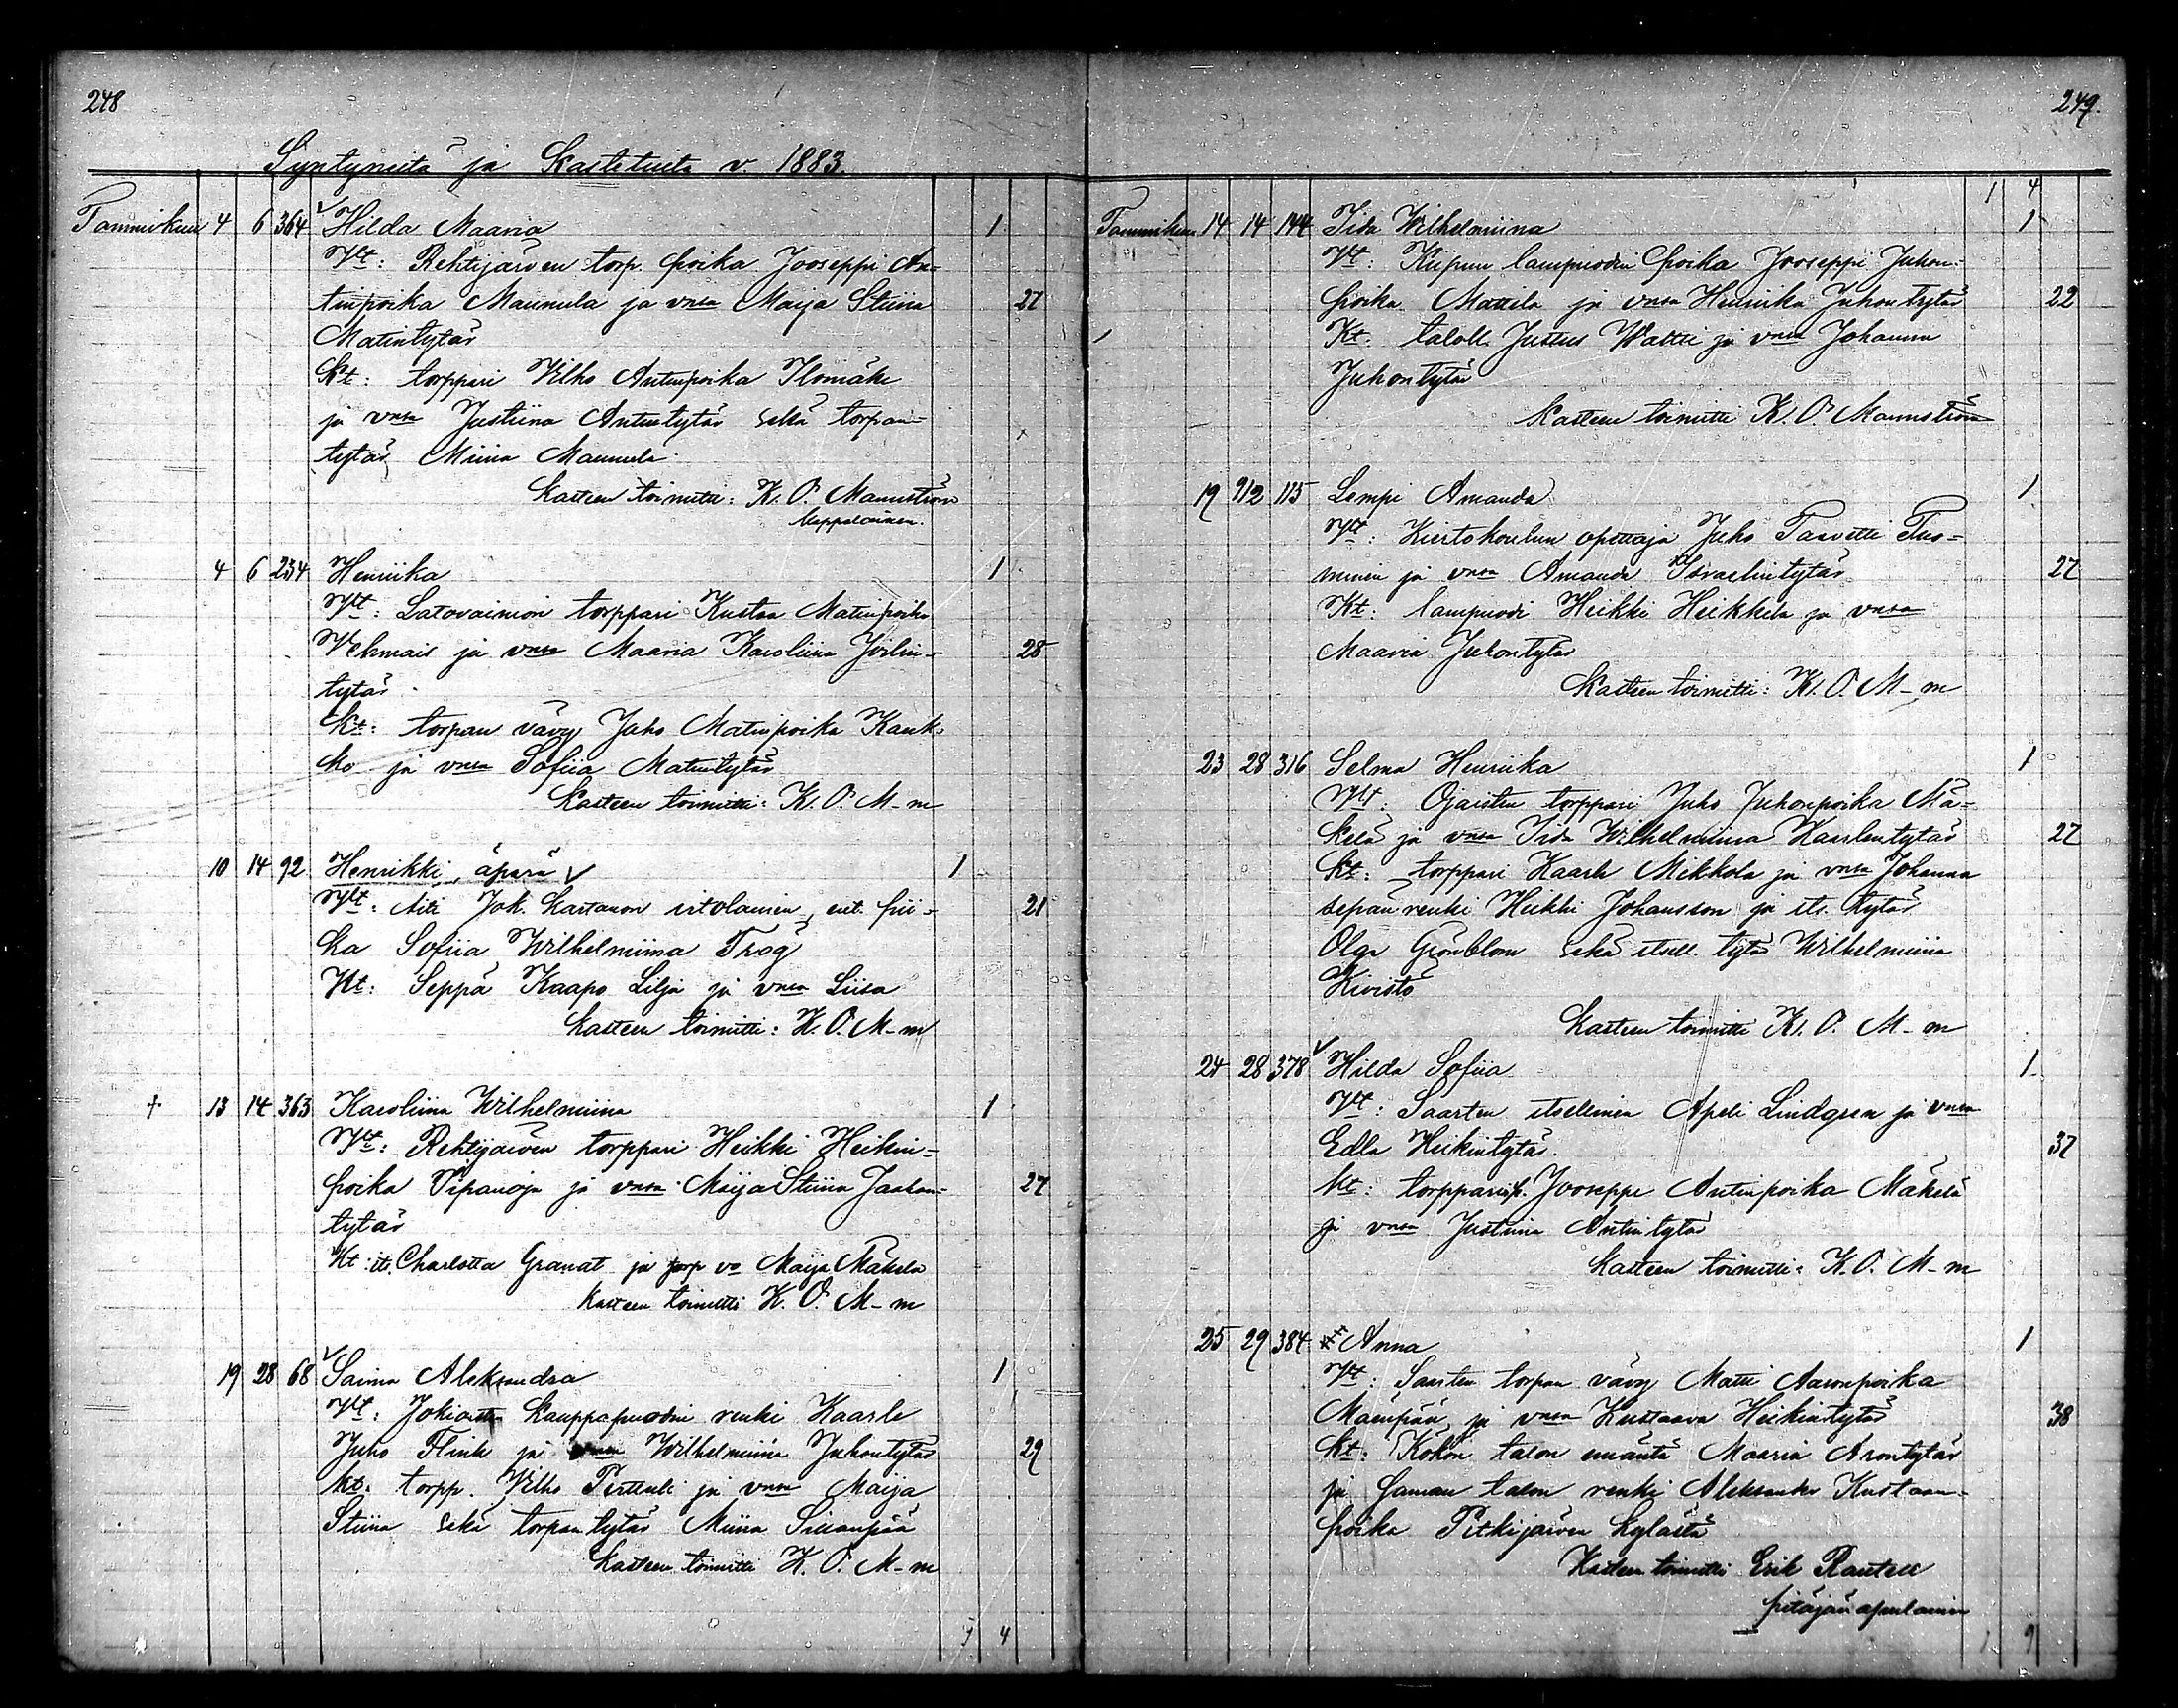 248
Syntyneitä ja Kastetuita v. 1883.
Tammikuu 4 6 364 Hilda Maaria 1
Vht: Rehtijärven torp. poika Jooseppi An-
tinpoika Maunula ja vmsa Maija Stiina 27
Matintytär
Kt: torppari Vilho Antinpoika Ilomäki
ja vmsa Justiina Antintytär sekä torpan-
tytär Miina Maunula
Kasteen toimitti: K. O. Mannström
kappalainen.
4 6 234 Henriika 1
Vht: Latovainion torppari Kustaa Matinpoika
Vehmais ja vmsa Maaria Karoliina 28
tytär
Kt: torpan vävy Juho Matinpoika Kauk-
ko ja vmsa Sofiia Matintytär
Kasteen toimitti: K. O. M-m
10 14 92 Henrikki, äpärä 1
Vht: Äiti Jok. Kartanon irtolainen, ent. pii- 21
ka Sofiia Wilhelmiina Trog
Kt: Seppä Kaapo Lilja ja vmsa Liisa
Kasteen toimitti: K. O. M-m
+ 13 14 363 Karoliina Wilhelmiina 1
Vht: Rehtijärven torppari Heikki Heikin-
poika Vipanoja ja vmsa Maija Stiina Jaakon- 27
tytär
Kt: its. Charlotta Granat ja torp vo Maija Mäkelä
Kasteen toimitti K. O. M-m
19 28 68 Saima Aleksandra 1
Vht: Jokioisten Kauppapuodin renki Kaarle
Juho Flink ja vmsa Wilhelmiina Juhontytär 29
Kt. torpp. Vilho Perttuli ja vmsa Maija
Stiina sekä torpan tytär Miina Sillanpää
Kasteen toimitti K. O. M-m
1 4
249.
1 4
Tammikuu 14 14 144 Iida Wilhelmiina 1
Vht: Kiipun lampuodin poika Jooseppi Juhon-
poika Mattila ja vmsa Henriika Juhontytär 22
Kt: taloll. Justus Waltti ja vmsa Johanna
Juhontytär
Kasteen toimitti K. O. Mannström
19 9/2 115 Lempi Amanda 1
Vht: Kiertokoulun opettaja Juho Taavetti Tuo-
minen ja vmsa Amanda Israelintytär 27
Kt: lampuodi Heikki Heikkilä ja vmsa
Maaria Juhontytär
Kasteen toimitti: K. O. M-m
23 28 316 Selma Henriika 1
Vht: Ojaisten torppari Juho Juhonpoika Mä-
kelä ja vmsa Iida Wilhelmiina Kaarlentytär 27
Kt: torppari Kaarle Mikkola ja vmsa Johanna
sepän renki Heikki Johansson ja its. tytär
Olga Grönblom sekä itsell. tytär Wilhelmiina
Kivistö
Kasteen toimitti K. O. M-m
24 28 378 Hilda Sofiia 1
Vht: Saarten itsellinen Apeli Lindgren ja vmsa
Edla Heikintytär. 37
Kt: torpparinp. Jooseppi Antinpoika Mäkelä
ja vmsa Justiina Antintytär
Kasteen toimitti: K. O. M-m
25 29 384 Anna 1
Vht: Saarten torpan vävy Matti Aaronpoika
Mäenpää, ja vmsa Kustaava Heikintytär 38
Kt: Kokon talon emäntä Maaria Arontytär
ja saman talon renki Aleksander Kustaan-
poika Pitkijärven kylästä
Kasteen toimitti Erik Rantell
pitäjän apulainen
1 9